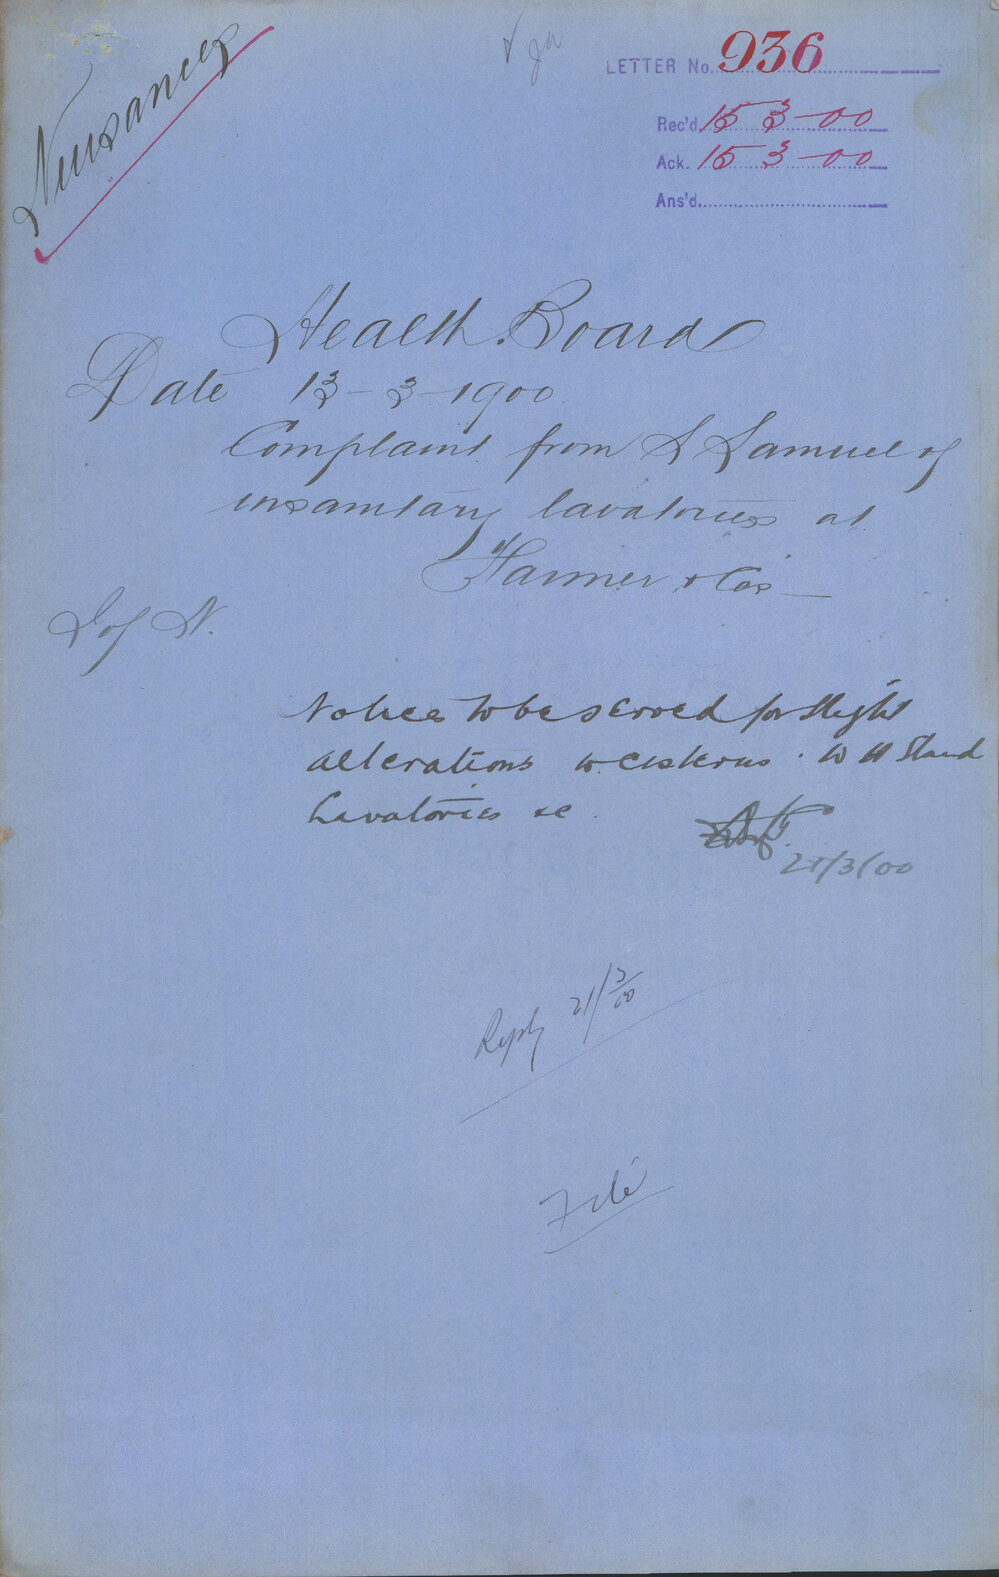 Nuisances
LETTER No. 936
Rec'd. 15 3-00
Ack. 15 3-00
Ans'd.
Health Board
Date 13-3-1900
Complaint from S Samuel of
insanitary lavatories at
Farmer & Cos
I of N.
Notices to be served for slight
alterations to cisterns. W H Stand
Lavatories &c.
21/3/00
Reply 21/3/00
File